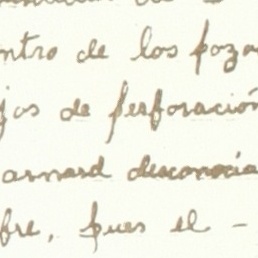 ntro de los poza
jos de perforación
arnard desconocía
fre, pues el -